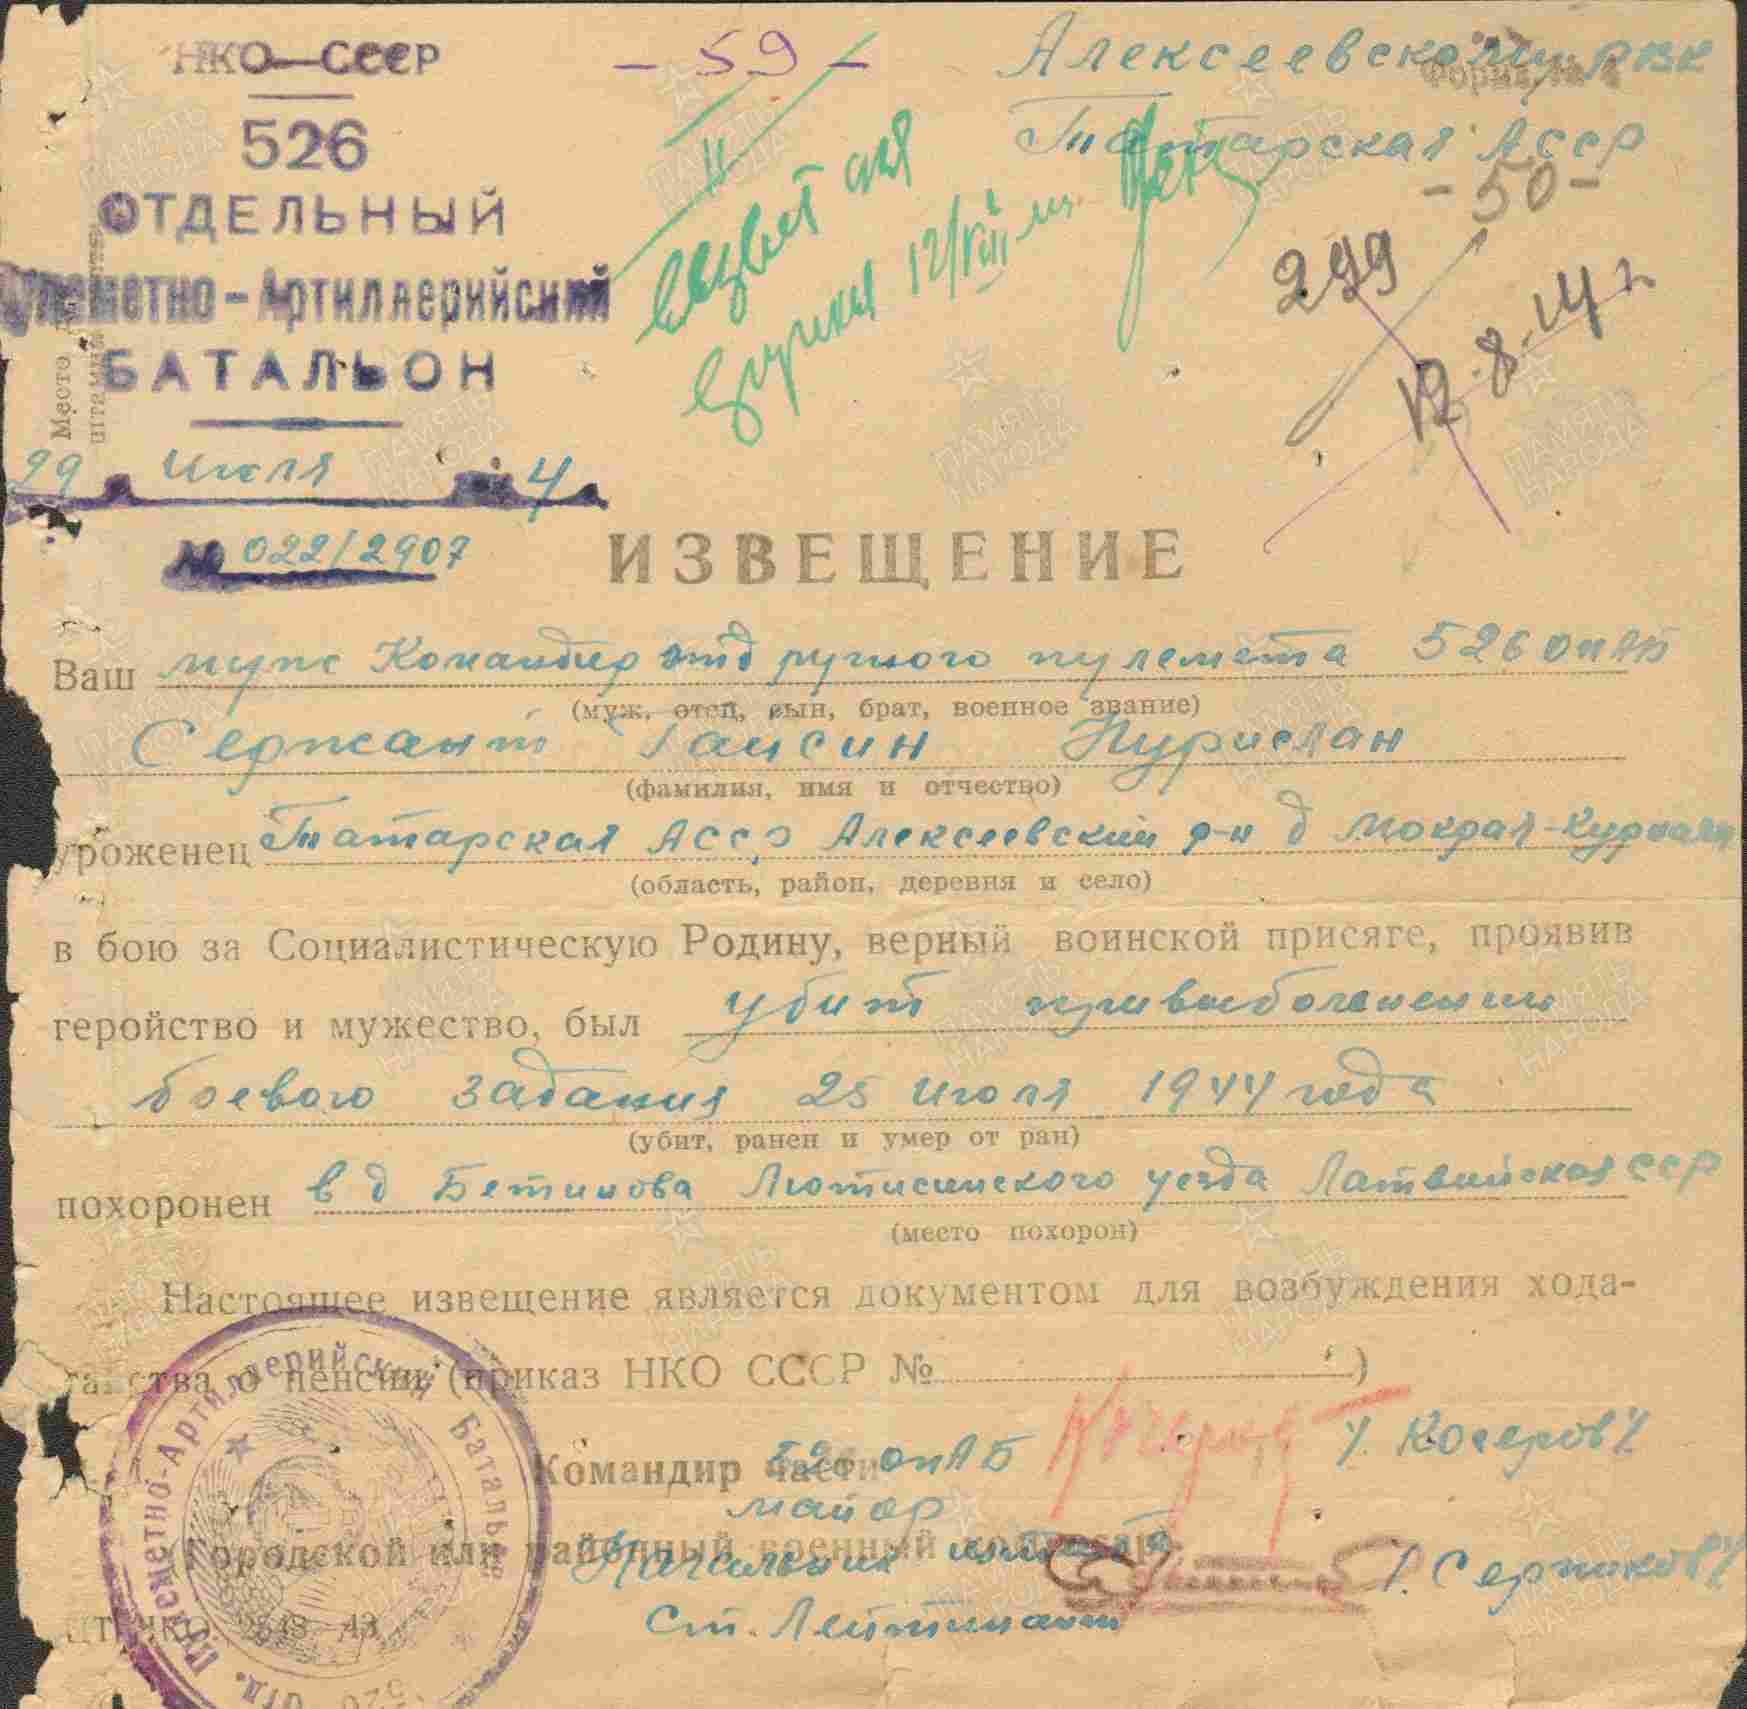 НКО—СССР
526
ОТДЕЛЬНЫЙ
Пулеметно-Артиллерийский
БАТАЛЬОН
Место
штампа
- 59 -
Алексеевскому РВК
Форма № 4
Татарская АССР
- 50 -
извещения
вручен 12/VIII
299
12.8-44 г
29 июля 4
№ 022/2907
ИЗВЕЩЕНИЕ
Ваш муж Командир отд ручного пулемета 526 опАБ
(муж, отец, сын, брат, военное звание)
Сержант Гаисин Нурислан
(фамилия, имя и отчество)
уроженец Татарская АССР Алексеевский р-н д Мокрая-Курнали
(область, район, деревня и село)
в бою за Социалистическую Родину, верный воинской присяге, проявив
геройство и мужество, был убит привыболнении
боевого задания 25 июля 1944 года
(убит, ранен и умер от ран)
похоронен в д Бетинова Лютисинского уезда Латвийская ССР
(место похорон)
Настоящее извещение является документом для возбуждения хода-
тайства о пенсии (приказ НКО СССР № )
Командир части 526 опАБ /. Косеров /
майор
Городской или районный военный комиссар
Начальник штаба /. Сержиков /
Ст. Лейтинант
Отд. Пулеметно-Артиллерийский Батальон
526